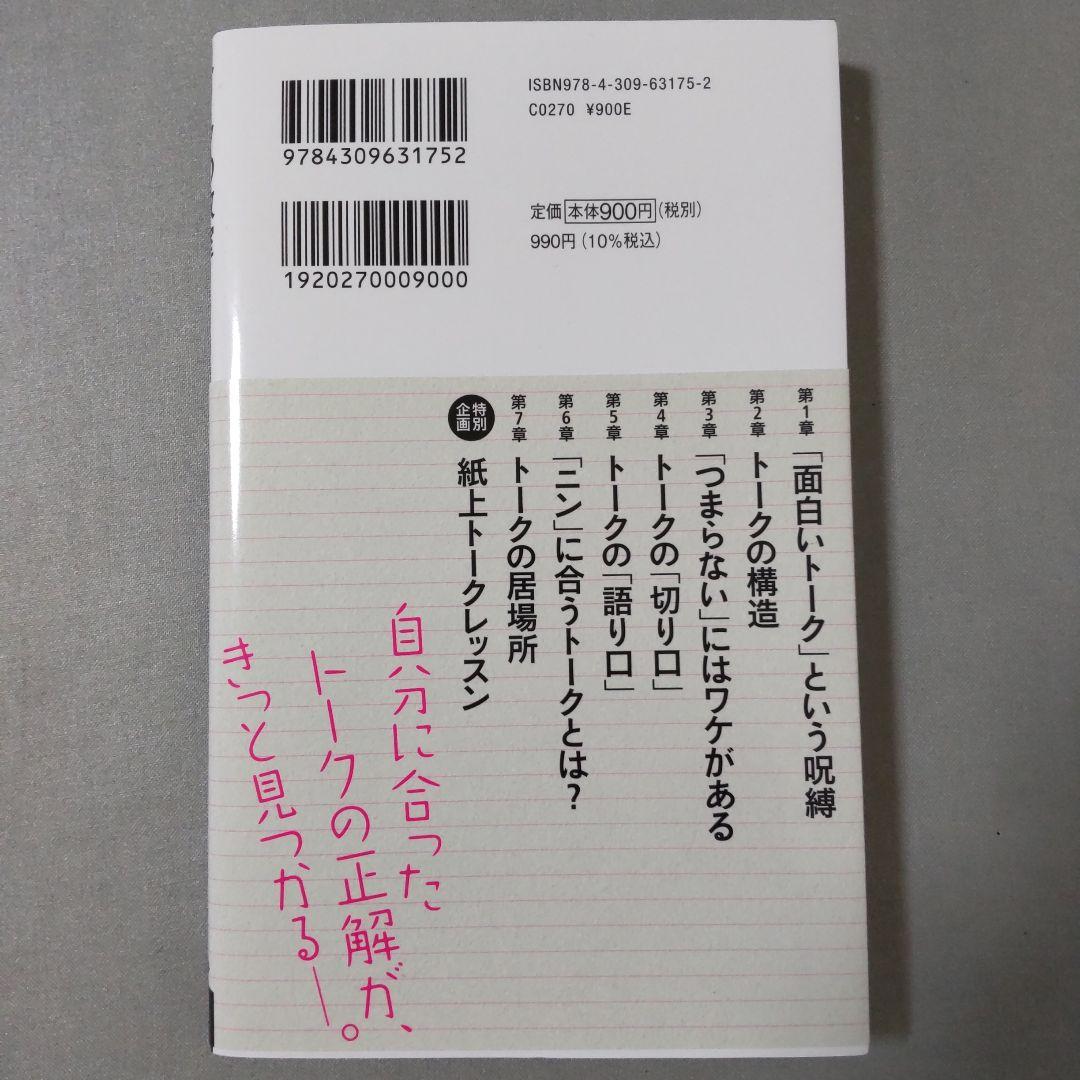 9784309631752
ISBN978-4-309-63175-2
C0270 ¥900E
1920270009000
定価 本体900円(税別)
990円(10%税込)
第1章 「面白いトーク」という呪縛
第2章 トークの構造
第3章 「つまらない」にはワケがある
第4章 トークの「切り口」
第5章 トークの「語り口」
第6章 「ニン」に合うトークとは?
第7章 トークの居場所
特別企画 紙上トークレッスン
自分に合った
トークの正解が、
きっと見つかる―。